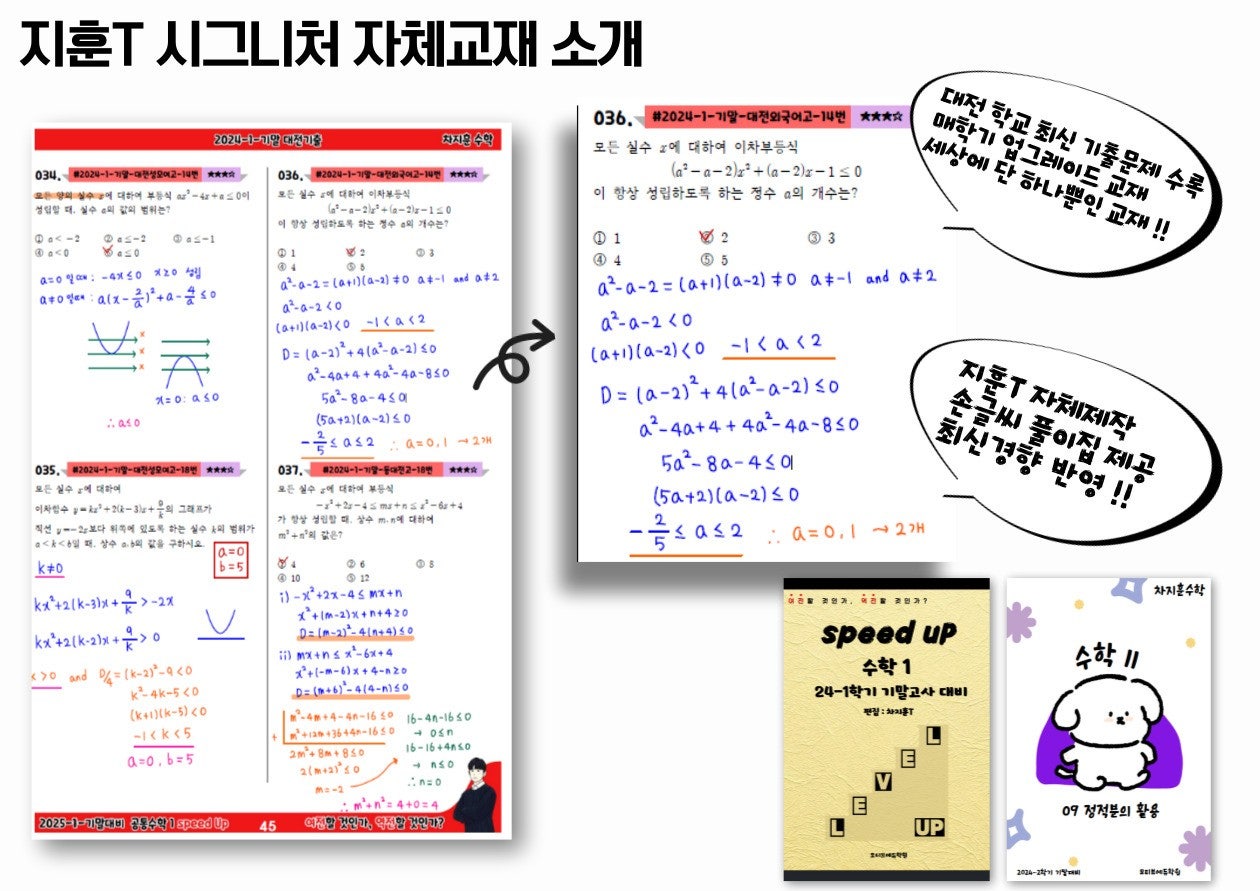 지훈T 시그니처 자체교재 소개
2024-1-기말 대전기출
차지훈 수학
034. #2024-1-기말-대전성모여고-14번 ★★★☆
모든 양의 실수 x에 대하여 부등식 ax²-4x+a≤0이
성립할 때, 실수 a의 값의 범위는?
① a<-2 ② a≤-2 ③ a≤-1
④ a<0 ⑤ a≤0
a=0 일때 : -4x≤0 x≥0 성립
a≠0 일때 : a(x-2/a)²+a-4/a≤0
x
x
x
x=0 : a≤0
∴ a≤0
035. #2024-1-기말-대전성모여고-18번 ★★★☆
모든 실수 x에 대하여
이차함수 y=kx²+2(k-3)x+9/k의 그래프가
직선 y=-2x보다 위쪽에 있도록 하는 실수 k의 범위가
a<k<b일 때, 상수 a, b의 값을 구하시오.
a=0
b=5
k≠0
kx²+2(k-3)x+9/k>-2x
kx²+2(k-2)x+9/k>0
k>0 and D/4=(k-2)²-9<0
k²-4k-5<0
(k+1)(k-5)<0
-1<k<5
a=0, b=5
036. #2024-1-기말-대전외국어고-14번 ★★★☆
모든 실수 x에 대하여 이차부등식
(a²-a-2)x²+(a-2)x-1≤0
이 항상 성립하도록 하는 정수 a의 개수는?
① 1 ② 2 ③ 3
④ 4 ⑤ 5
a²-a-2=(a+1)(a-2)≠0 a≠-1 and a≠2
a²-a-2<0
(a+1)(a-2)<0 -1<a<2
D=(a-2)²+4(a²-a-2)≤0
a²-4a+4+4a²-4a-8≤0
5a²-8a-4≤0
(5a+2)(a-2)≤0
-2/5≤a≤2 ∴ a=0,1 → 2개
037. #2024-1-기말-동대전고-18번 ★★★☆
모든 실수 x에 대하여 부등식
-x²+2x-4≤mx+n≤x²-6x+4
가 항상 성립할 때, 상수 m, n에 대하여
m²+n²의 값은?
① 4 ② 6 ③ 8
④ 10 ⑤ 12
i) -x²+2x-4≤mx+n
x²+(m-2)x+n+4≥0
D=(m-2)²-4(n+4)≤0
ii) mx+n≤x²-6x+4
x²+(-m-6)x+4-n≥0
D=(m+6)²-4(4-n)≤0
m²-4m+4-4n-16≤0
+ m²+12m+36+4n-16≤0
2m²+8m+8≤0
2(m+2)²≤0
m=-2
16-4n-16≤0
→ 0≤n
16-16+4n≤0
→ n≤0
∴ n=0
∴ m²+n²=4+0=4
2025-1-기말대비 공통수학1 speed Up 45 여전할 것인가, 역전할 것인가?
036. #2024-1-기말-대전외국어고-14번 ★★★☆
모든 실수 x에 대하여 이차부등식
(a²-a-2)x²+(a-2)x-1≤0
이 항상 성립하도록 하는 정수 a의 개수는?
① 1 ② 2 ③ 3
④ 4 ⑤ 5
a²-a-2=(a+1)(a-2)≠0 a≠-1 and a≠2
a²-a-2<0
(a+1)(a-2)<0 -1<a<2
D=(a-2)²+4(a²-a-2)≤0
a²-4a+4+4a²-4a-8≤0
5a²-8a-4≤0
(5a+2)(a-2)≤0
-2/5≤a≤2 ∴ a=0,1 → 2개
대전 학교 최신 기출문제 수록
매학기 업그레이드 교재
세상에 단 하나뿐인 교재 !!
지훈T 자체제작
손글씨 풀이집 제공
최신경향 반영 !!
여전할 것인가, 역전할 것인가?
speed uP
수학 1
24-1학기 기말고사 대비
편집 : 차지훈T
L
E
V
E
L UP
모티브에듀학원
차지훈수학
수학 II
09 정적분의 활용
2024-2학기 기말대비
모티브에듀학원